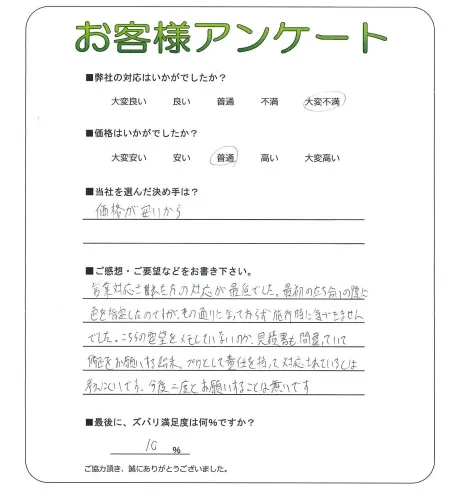 お客様アンケート
■弊社の対応はいかがでしたか？
大変良い 良い 普通 不満 大変不満
■価格はいかがでしたか？
大変安い 安い 普通 高い 大変高い
■当社を選んだ決め手は？
価格が安いから
■ご感想・ご要望などをお書き下さい。
営業対応された方の対応が最低でした。最初の立ち会いの際に
色を指定したのですが、その通りになっておらず施行時に気づきません
でした。こちらの要望をメモしていないのか、見積書も間違っていて
修正をお願いする始末。プロとして責任を持って対応されているとは
考えにくいです。今後二度とお願いすることは無いです
■最後に、ズバリ満足度は何%ですか？
10 %
ご協力頂き、誠にありがとうございました。